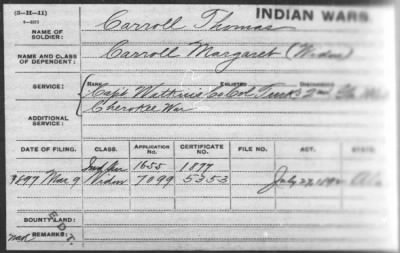 (3-H-11)
INDIAN WARS
NAME OF SOLDIER: Carroll Thomas
NAME AND CLASS OF DEPENDENT: Carroll Margaret (Widow)
SERVICE: RANK ENLISTED DISCHARGED
Capt Watkins Co Col 2nd
Cherokee War
ADDITIONAL SERVICE:
DATE OF FILING. CLASS. APPLICATION NO. CERTIFICATE NO. FILE NO. ACT. STATE.
1655 1877
1897 Mar 9 Widow 7099 5353 July 27, 1892 Ala
BOUNTY LAND:
REMARKS: